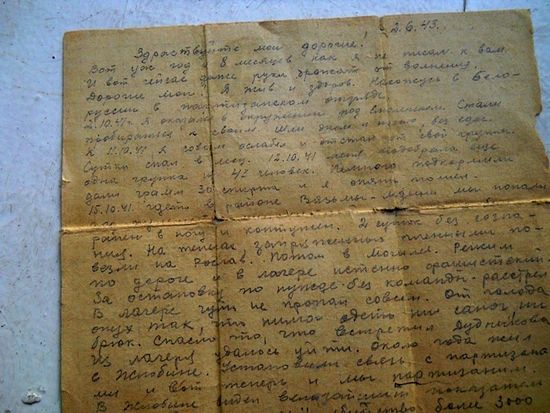 2.6.43.
Здравствуйте мои дорогие!
Вот уж год и 8 месяцев как я не писал к вам.
И вот сейчас даже руки дрожат от волнения.
Дорогие мои! Я жив и здоров. Нахожусь в Бело-
руссии в партизанском отряде.
2.10.41 г. я оказался в окружении под Спасском. Стали
пробираться к своим. Шли днем и ночью без еды.
К 12.10.41 я совсем ослабел и отстал от своей группы.
Сутки спал в лесу. 12.10.41 меня подобрала еще
одна группка в 42 человек. Немного подкормили
дали грамм 30 спирта и я опять пошел.
15.10.41 где-то в районе Вязьмы мы попали
ранен в ногу и контужен. 2 суток без созна-
ния. На телегах запряженных пленными по-
везли на Рославль. Потом в Могилев. Режим
по дороге и в лагере истинно фашистский.
За остановку по нужде без команды - расстрел
В лагере чуть не пропал совсем. От голода
опух так, что нимог одеть ни сапог ни
брюк. Спасло то, что встретил Дудникова
Из лагеря удалось уйти. Около года жил
в Жлобине. Установили связь с партизана
ми и вот теперь и мы партизаним.
В Жлобине
более 3000